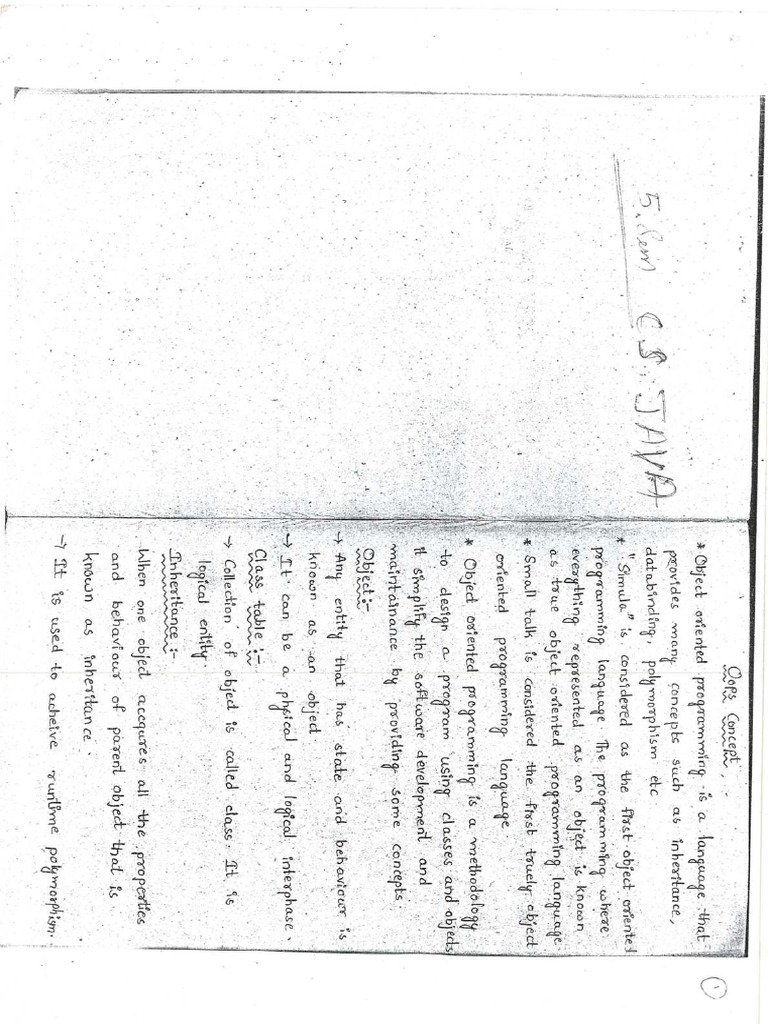 5. Sem CS. JAVA
Oops Concept
* Object oriented programming is a language that
provides many concepts such as inheritance,
databinding, polymorphism etc
* "Simula" is considered as the first object oriented
programming language. The programming where
everything represented as an object is known
as true object oriented programming language
* Small talk is considered the first truely object
oriented programming language
* Object oriented programming is a methodology
to design a program using classes and objects
it simplify the software development and
maintainance by providing some concepts.
Object:-
→ Any entity that has state and behaviour is
known as an object
→ It can be a physical and logical interphase.
Class table:-
→ Collection of object is called class. It is
logical entity.
Inheritance:-
When one object accqures all the properties
and behaviour of parent object that is
known as inheritance.
→ It is used to acheive runtime polymorphism.
1